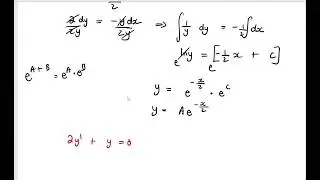 2
2dy/2y = -y dx/2y ⇒ ∫ 1/y dy = -1/2 ∫dx
e^lny = e^[-1/2 x + c]
e^(A+B) = e^A · e^B
y = e^(-x/2) · e^c
y = Ae^(-x/2)
2y' + y = 0